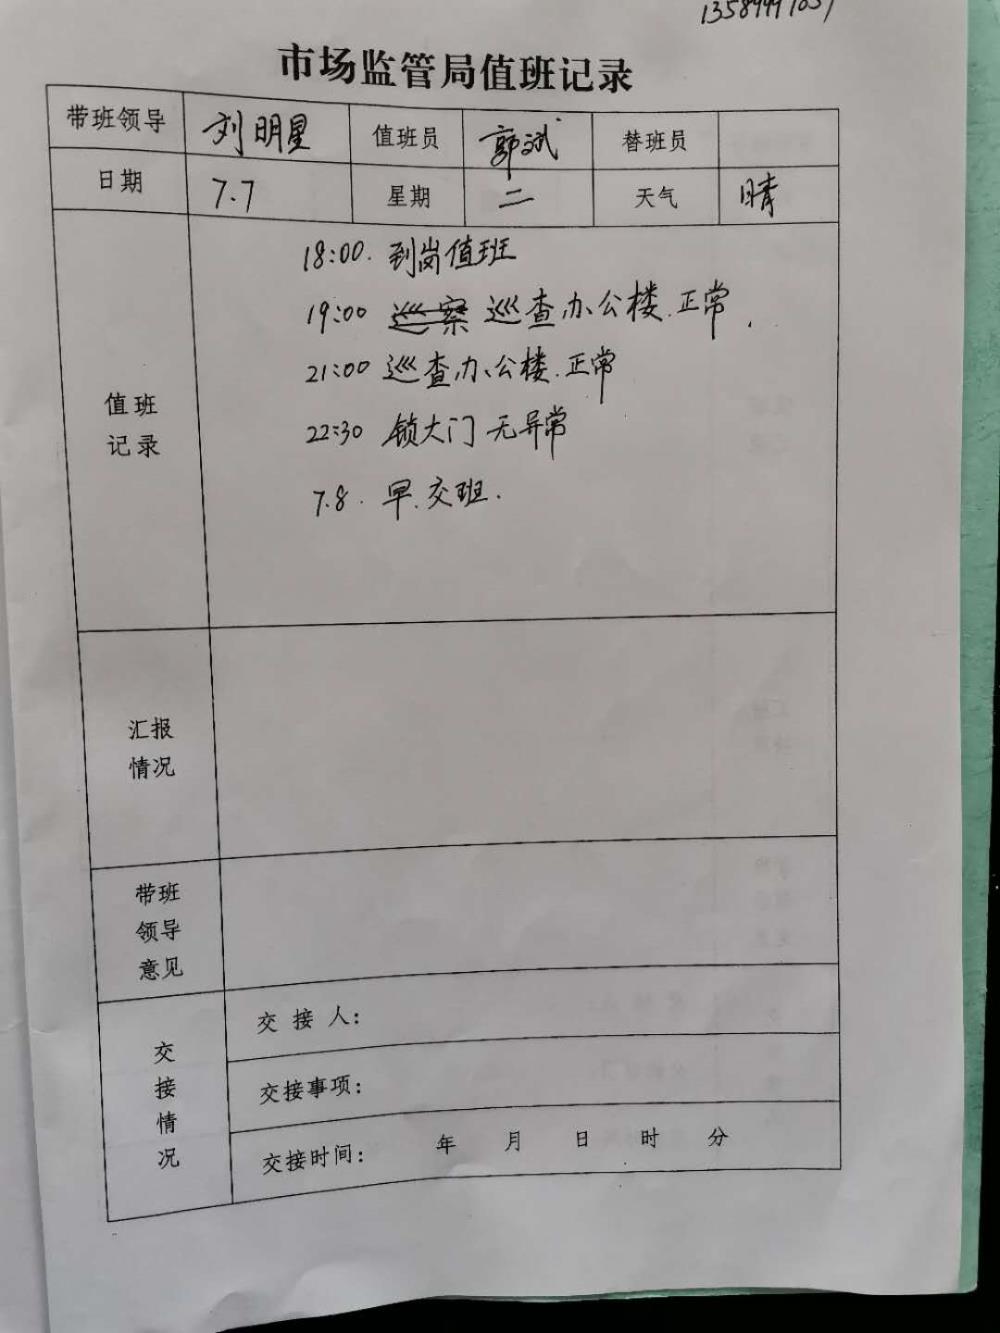 市场监管局值班记录
带班领导 刘明星 值班员 郭斌 替班员
日期 7.7 星期 二 天气 晴
18:00. 到岗值班
19:00 巡察 巡查办公楼.正常.
21:00 巡查办公楼.正常
22:30 锁大门 无异常
7.8. 早.交班.
值班
记录
汇报
情况
带班
领导
意见
交接情况
交接人:
交接事项:
交接时间: 年 月 日 时 分